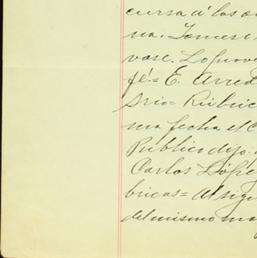 cursa á los
na. Tomese
vase. Lo prove
fé = E. Arred
Srio = Rúbric
ma fecha el C
Publico dijo:
Carlos Lópe
bricas = Al sig
del mismo ma